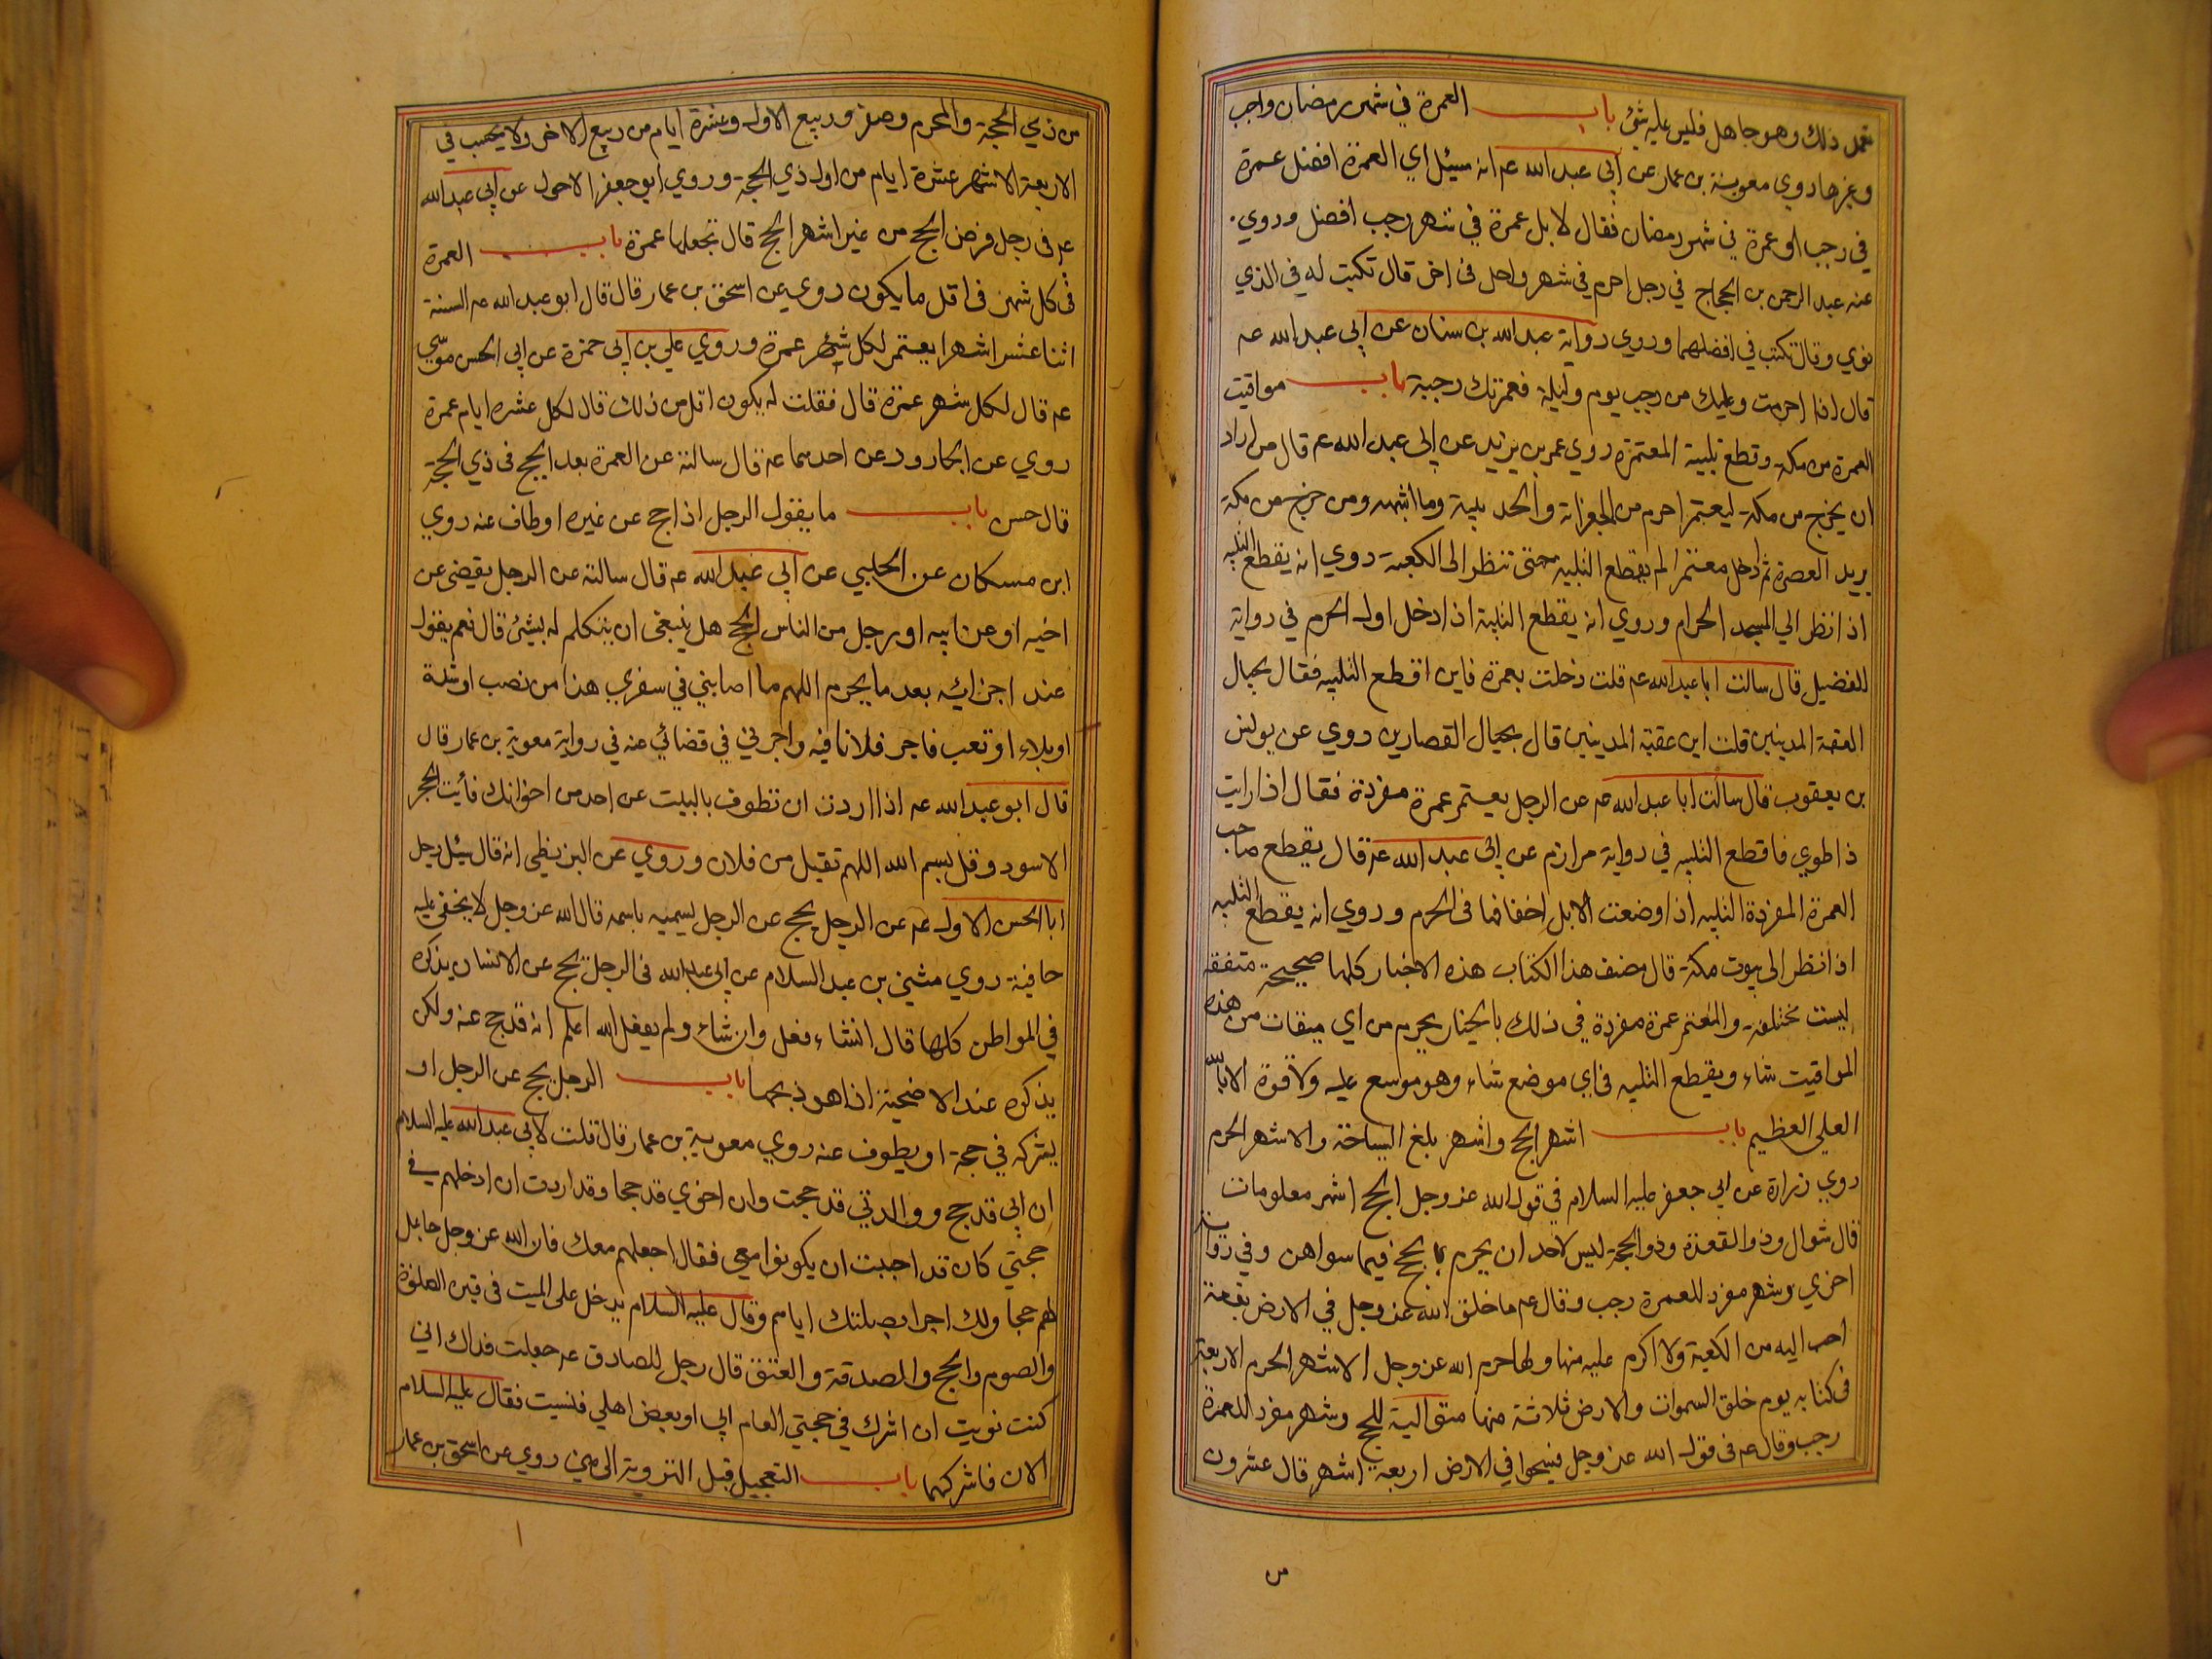 تعمد ذلك وهو جاهل فليس عليه شئ باب العمرة في شهر رمضان واجب
وغيرها روي معوية بن عمار عن ابي عبد الله عم انه سيئل اي العمرة افضل عمرة
في رجب او عمرة في شهر رمضان فقال لا بل عمرة في شهر رجب افضل وروي
عنه عبد الرحمن بن الحجاج في رجل احرم في شهر واحل في اخر قال تكتب له في الذي
نوي وقال تكتب في افضلهما وروي رواية عبد الله بن سنان عن ابي عبد الله عم
قال اذا احرمت وعليك من رجب يوم وليلة فعمرتك رجبية باب مواقيت
العمرة من مكة وقطع تلبية المعتمرة روي عمر بن يزيد عن ابي عبد الله عم قال من اراد
ان يخرج من مكة ليعتمر احرم من الجعرانة والحديبية وما اشبهه ومن خرج من مكة
يريد العمرة ثم دخل معتمرا لم يقطع التلبية حتى تنظر الى الكعبة روي انه يقطع التلبية
اذا نظر الي المسجد الحرام وروي انه يقطع التلبية اذا دخل اول الحرم في رواية
الفضيل قال سالت ابا عبد الله عم قلت دخلت بعمرة فاين اقطع التلبيه فقال بحيال
العقبة المدينين قلت اين عقبة المدينين قال بحيال القصارين روي عن يونس
بن يعقوب قال سالت ابا عبد الله عم عن الرجل يعتمر عمرة مفردة فقال اذا رايت
ذا طوي فاقطع التلبيه في رواية مرازم عن ابي عبد الله عم قال يقطع صاحب
العمرة المفردة التلبيه اذا وضعت الابل اخفافها في الحرم وروي انه يقطع التلبيه
اذا نظر الى بيوت مكة قال مصنف هذا الكتاب هذه الاخبار كلها صحيحة متفقة
ليست مختلفة والمعتمر عمرة مفردة في ذلك بالخيار يحرم من اي ميقات من هذه
المواقيت شاء ويقطع التلبيه في اي موضع شاء وهو موسع عليه ولا قوة الا بالله
العلي العظيم باب اشهر الحج واشهر بلغ السياحة والاشهر الحرم
روي زرارة عن ابي جعفر عليه السلام في قول الله عز وجل الحج اشهر معلومات
قال شوال وذو القعدة وذو الحجة ليس لاحد ان يحرم بالحج فيما سواهن وفي رواية
اخري وشهر مفرد للعمرة رجب وقال عم ما خلق الله عز وجل في الارض بقعة
احب اليه من الكعبة ولا اكرم عليه منها ولها حرم الله عز وجل الاشهر الحرم الاربعة
في كتابه يوم خلق السموات والارض ثلاثة منها متوالية للحج وشهر مفرد للعمرة
رجب وقال عم في قول الله عز وجل فسيحوا في الارض اربعة اشهر قال عشرون
من
من ذي الحجة والمحرم وصفر وربيع الاول وعشرة ايام من ربيع الاخر ولا يحسب في
الاربعة الاشهر عشرة ايام من اول ذي الحجة وروي ابو جعفر الاحول عن ابي عبد الله
عم في رجل فرض الحج من غير اشهر الحج قال تجعلها عمرة باب العمرة
في كل شهر في اقل ما يكون روي عن اسحق بن عمار قال قال ابو عبد الله عم السنة
اثنا عشر شهرا يعتمر لكل شهر عمرة وروي علي بن ابي حمزة عن ابي الحسن موسي
عم قال لكل شهر عمرة قال فقلت له يكون اقل من ذلك قال لكل عشره ايام عمرة
روي عن الجارود عن احدهما عم قال سالته عن العمرة بعد الحج في ذي الحجة
قال حسن باب ما يقول الرجل اذا حج عن غيره او طاف عنه روي
ابن مسكان عن الحلبي عن ابي عبد الله عم قال سالته عن الرجل يقضي عن
اخيه او عن ابيه او رجل من الناس الحج هل ينبغي ان يتكلم له بشئ قال نعم يقول
عند احرائه بعد ما يحرم اللهم ما اصابني في سفري هذا من نصب او شدة
او بلاء او تعب فاجر فلانا فيه واجرني في قضائي عنه في رواية معوية بن عمار قال
قال ابو عبد الله عم اذا اردت ان تطوف بالبيت عن احد من اخوانك فأيت الحجر
الاسود وقل بسم الله اللهم تقبل من فلان وروي عن البزنطي انه قال سيئل رجل
ابا الحسن الاول عم عن الرجل يحج عن الرجل يسميه باسمه قال الله عز وجل لا يخفي عليه
خافية روي مثني بن عبد السلام عن ابي عبد الله في الرجل يحج عن الانسان يذكره
في المواطن كلها قال انشاء فعل وان شاء ولم يفعل الله اعلم انه قد حج عنه ولكن
يذكره عند الاضحية اذا هو ذبحها باب الرجل يحج عن الرجل او
يشركه في حجة او يطوف عنه روي معوية بن عمار قال قلت لابي عبد الله عليه السلام
ان ابي قد حج ووالدتي قد حجت وان اخوي قد حجا وقد اردت ان ادخلهم في
حجتي كان قد احببت ان يكونوا معي فقال اجعلهم معك فان الله عز وجل جاعل
لهم حجا ولك اجرا بصلتك اياهم وقال عليه السلام يدخل على الميت في قبره الصلوة
والصوم والحج والصدقة والعتق قال رجل للصادق عم جعلت فداك اني
كنت نويت ان اشرك في حجتي العام ابي او بعض اهلي فنسيت فقال عليه السلام
الان فاشركهما باب التعجيل قبل التروية الى مني روي عن اسحق بن عمار